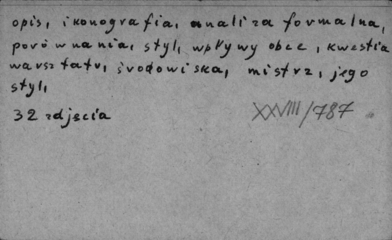 opis, ikonografia, analiza formalna,
porównania, styl, wpływy obce, kwestia
warsztatu, środowiska, mistrz, jego
styl,
32 zdjęcia XXVIII/787